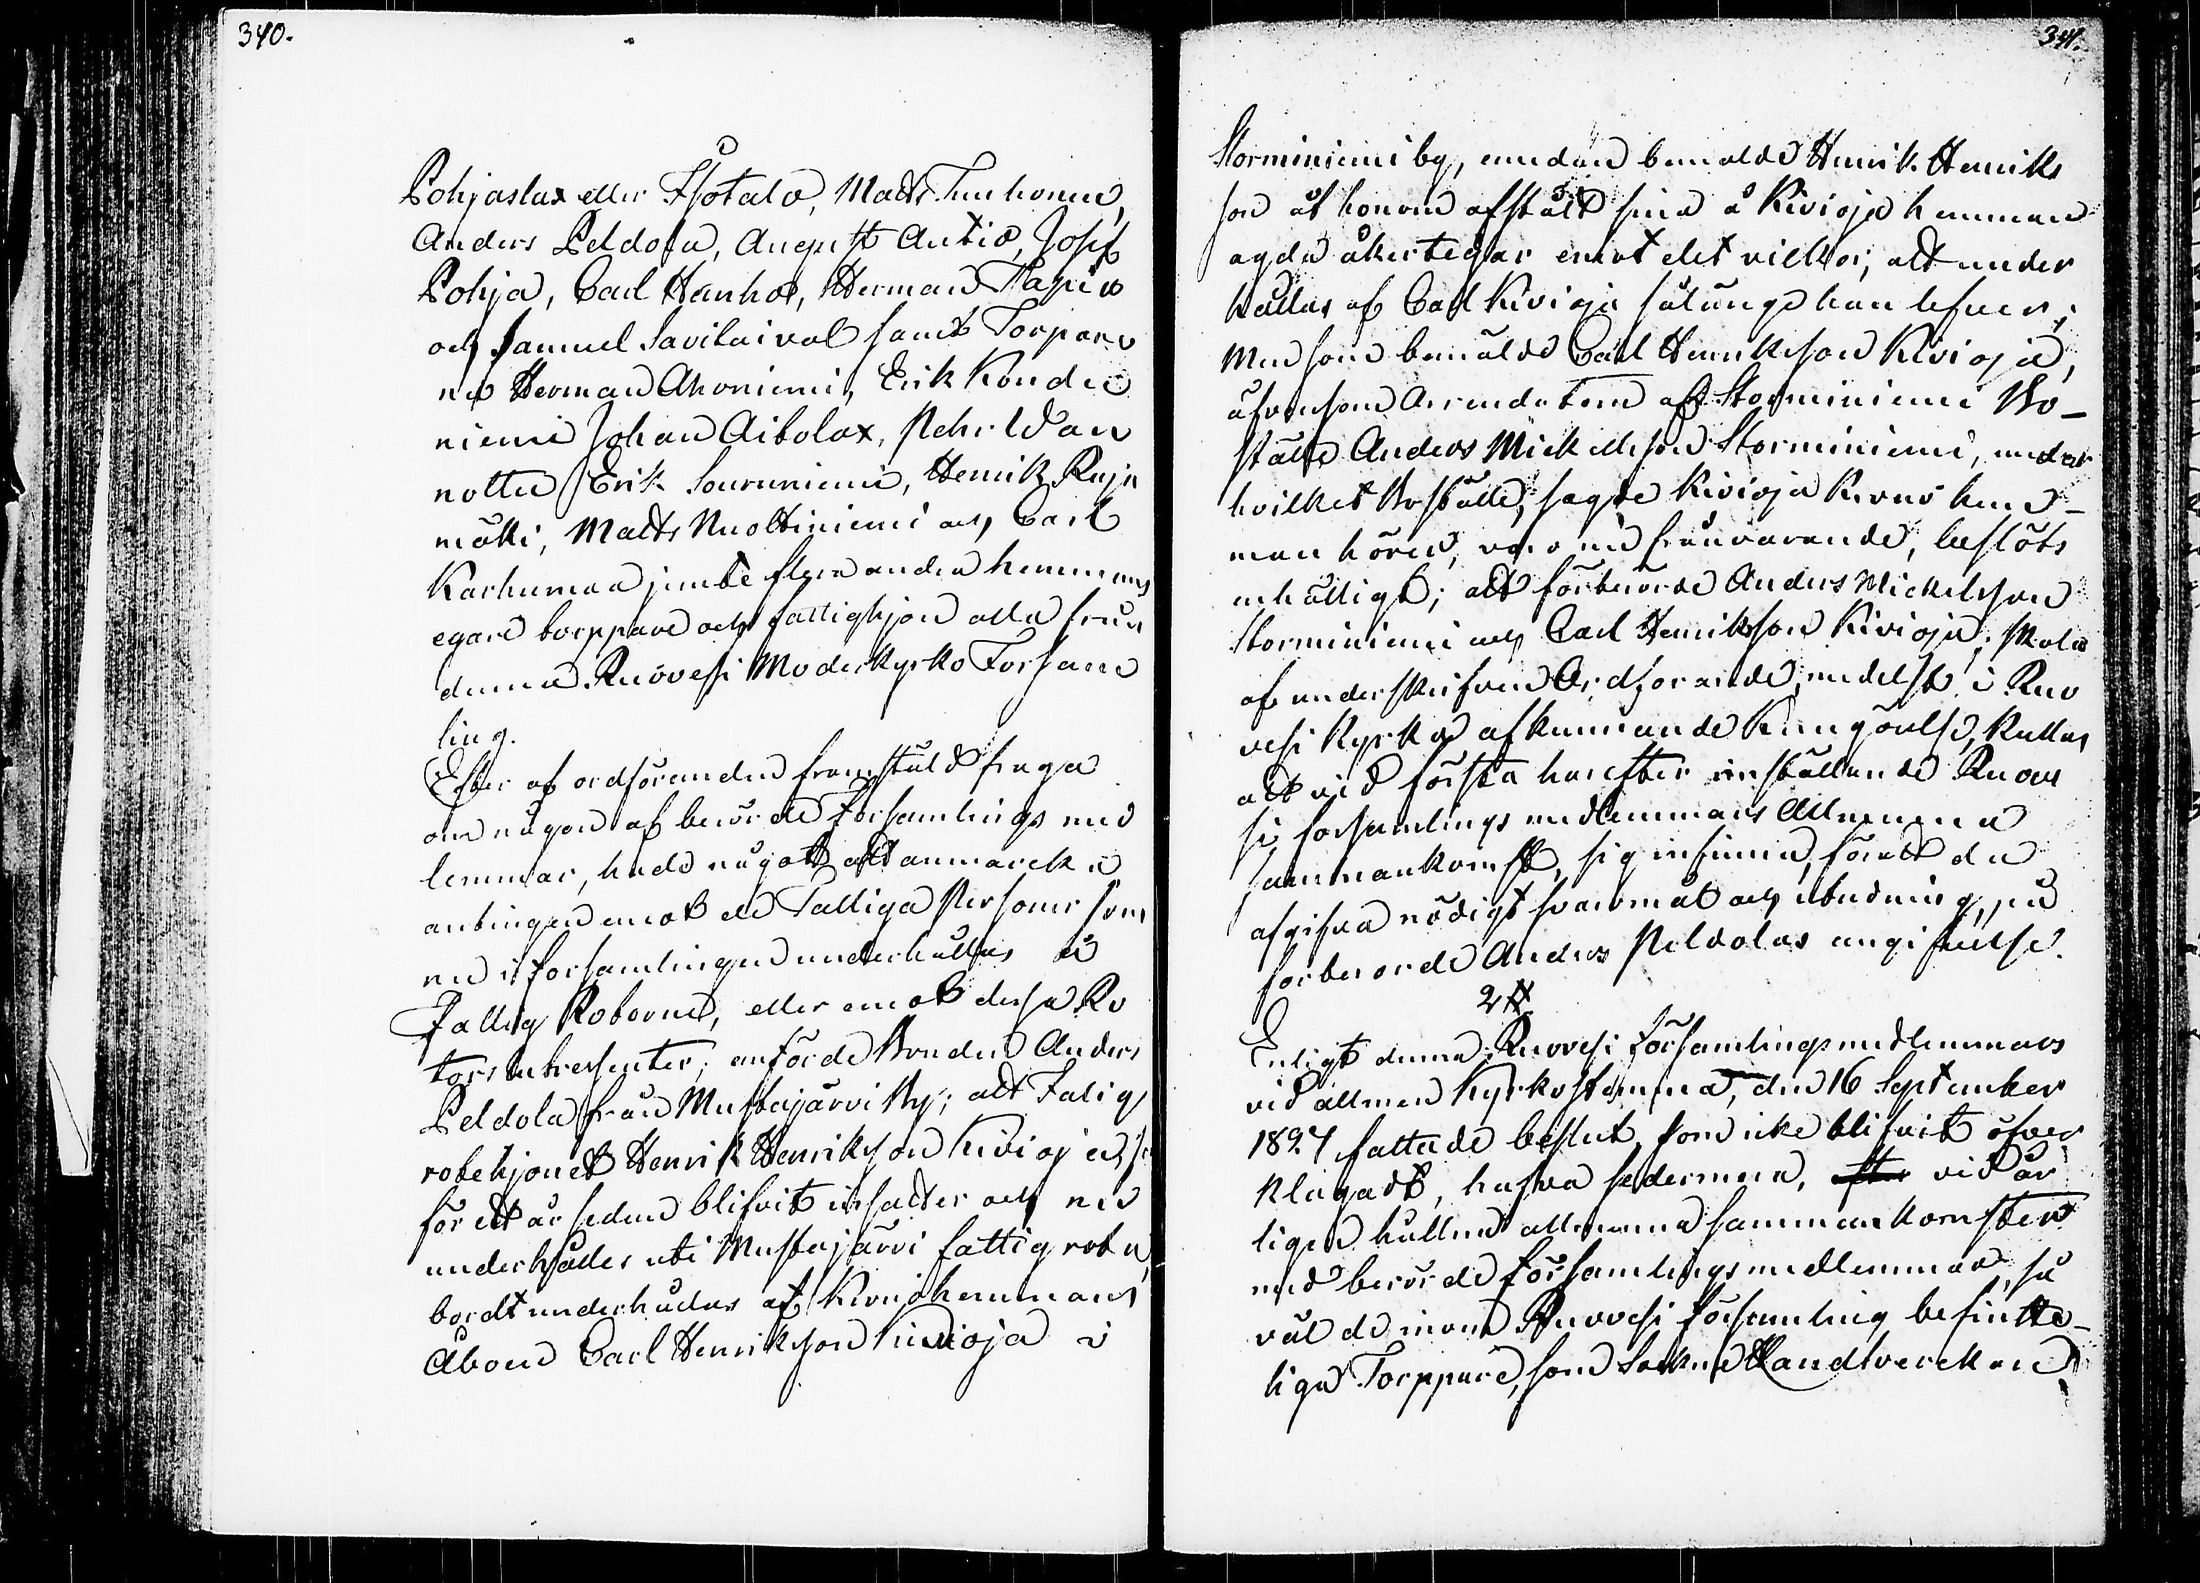 340.
Pohjaslax eller Isotalo, Matts Tuuhonen,
Anders Peldola, August Autio, Josef
Pohja, Carl Hanho, Herman Papio
och Samuel Savilaival samt Torpare
ne Herman Ahoniemi, Erik Konde
niemi Johan Aitolax, Pehr
Erik Souruniemi, Henrik Raja
mäki, Matts Nuoltiniemi och Carl
Karhumaa jemte flera andra hemmans
egare torppare och fattighjon alla från
denna Ruovesi Moderkyrko Forsam
ling.
Efter af ordföranden framstäld fraga
om någon af berörde Forsamlings med
lemmar, hade någott att anmärcka
antingen emot de Fattiga Personer som
nu i forsamlingen underhållas å
Fattig Roterne, eller emot dessa Ro
tors intressenter; anförde Bonden Anders
Peldola från Mustajärvi By; att Fatig
rotehjonet Henrik Henriksson Kivioja, som
för ett år sedan blifvit insatter och nu
underhålles uti Mustajärvi fattig rota,
bordt underhådas af Krono hemmans
Åboen Carl Henriksson Kivioja i
341.
Storminiemi by, emedan bemälde Henrik Henriks
son åt honom afstått sina å Kivioja hemman
ägda åkertegar emot det vilkor, att under
hållas af Carl Kivioja sålänge han lefver;
Men som bemälde Carl Henriksson Kivioja,
äfvensom Arrendatorn af Storminiemi Bo-
ställe Anders Mickellsson Storminiemi, under
hvilket Boställe, sagde Kivioja Krono hem-
man hörer, voro nu frånvarande, beslöts
enhälligt; att förberörde Anders Mickelsson
Storminiemi och Carl Henriksson Kivioja, skola
af underskrifven Ordförande, medelst i Ruo
vesi Kyrka afkunnande Kungörelse, Kallas
att vid första härefter inställande Ruove
si forsamlings medlemmars Allmenna
sammankomst, sig infinna, föratt da
afgifva nödigt svaromål och utredning, på
forberorde Anders Peldolas angifvelse.
2 §
Enligt denna Ruovesi Församlings medlemmars
vid allmen Kyrkostemma, den 16 September
1827 fattade beslut, som icke blifvit öfver
klagadt, hafva sedermera, vid år
ligen hållna allmenna sammankomster
med berörde församlings medlemmar, så
väl de inom Ruovesi församling befintte-
liga Torppare, som Sockne Handtverckare